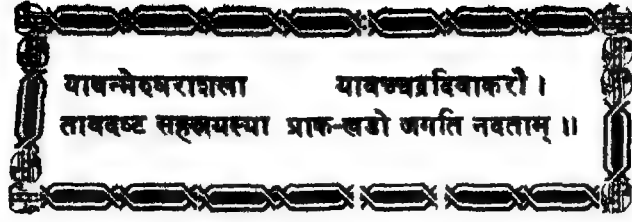 यावन्मेरुधराशला यावच्चद्रदिवाकरौ ।
तावदष्ट सहस्रयस्या प्राक-खडो जगति नदताम् ॥